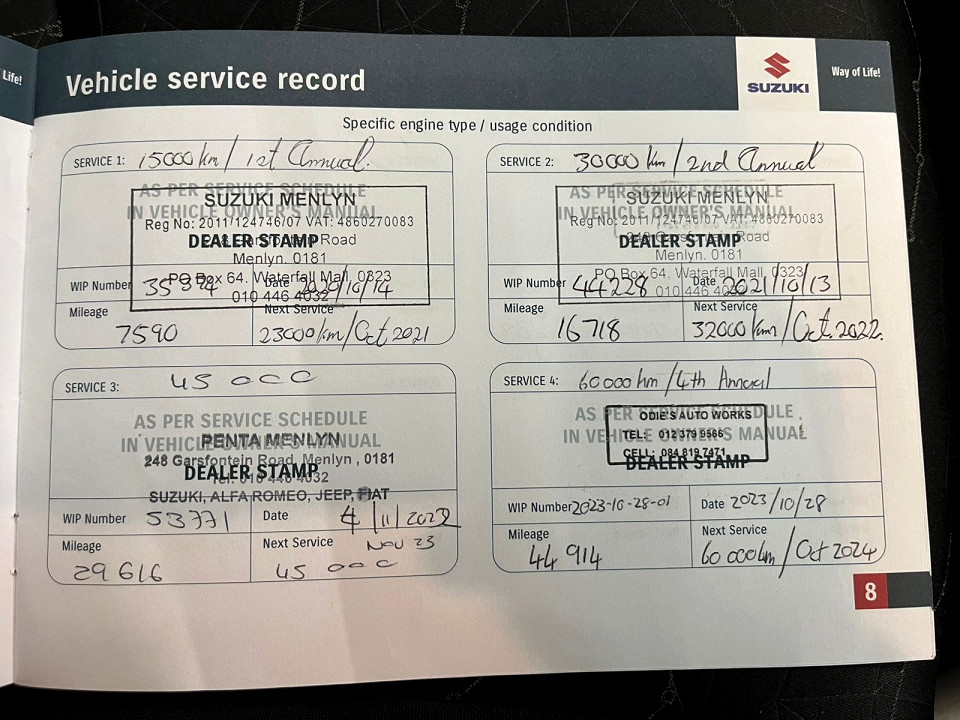 Life!
Vehicle service record
SUZUKI
Way of Life!
Specific engine type / usage condition
SERVICE 1: 15000 km / 1st Annual.
AS PER SERVICE SCHEDULE
IN VEHICLE OWNER'S MANUAL
SUZUKI MENLYN
Reg No: 2011/124746/07 VAT: 4860270083
DEALER STAMP
Garsfontein Road
Menlyn. 0181
PO Box 64. Waterfall Mall, 0323
010 446 4032
WIP Number
Date 2020/10/14
Mileage
7590
Next Service
23000 km/Oct 2021
SERVICE 2: 30000 km / 2nd Annual
AS PER SERVICE SCHEDULE
IN VEHICLE OWNER'S MANUAL
SUZUKI MENLYN
Reg No: 2011/124746/07 VAT: 4860270083
DEALER STAMP
248 Garsfontein Road
Menlyn. 0181
PO Box 64. Waterfall Mall, 0323
010 446 4032
WIP Number 44228
Date 2021/10/13
Mileage
16718
Next Service
32000 km/Oct.2022.
SERVICE 3: 45 000
AS PER SERVICE SCHEDULE
IN VEHICLE OWNER'S MANUAL
PENTA MENLYN
248 Garsfontein Road, Menlyn , 0181
DEALER STAMP
Tel: 010 446 4032
SUZUKI, ALFA ROMEO, JEEP, FIAT
WIP Number 53771
Date 4/11/2022
Mileage
29 616
Next Service Nov 23
45 000
SERVICE 4: 60 000 km / 4th Annual
AS PER SERVICE SCHEDULE
IN VEHICLE OWNER'S MANUAL
ODIE'S AUTO WORKS
TEL: 012 379 9566
CELL: 084 819 7471
DEALER STAMP
WIP Number 2023-10-28-01
Date 2023/10/28
Mileage
44 914
Next Service
60 000 km / Oct 2024
8